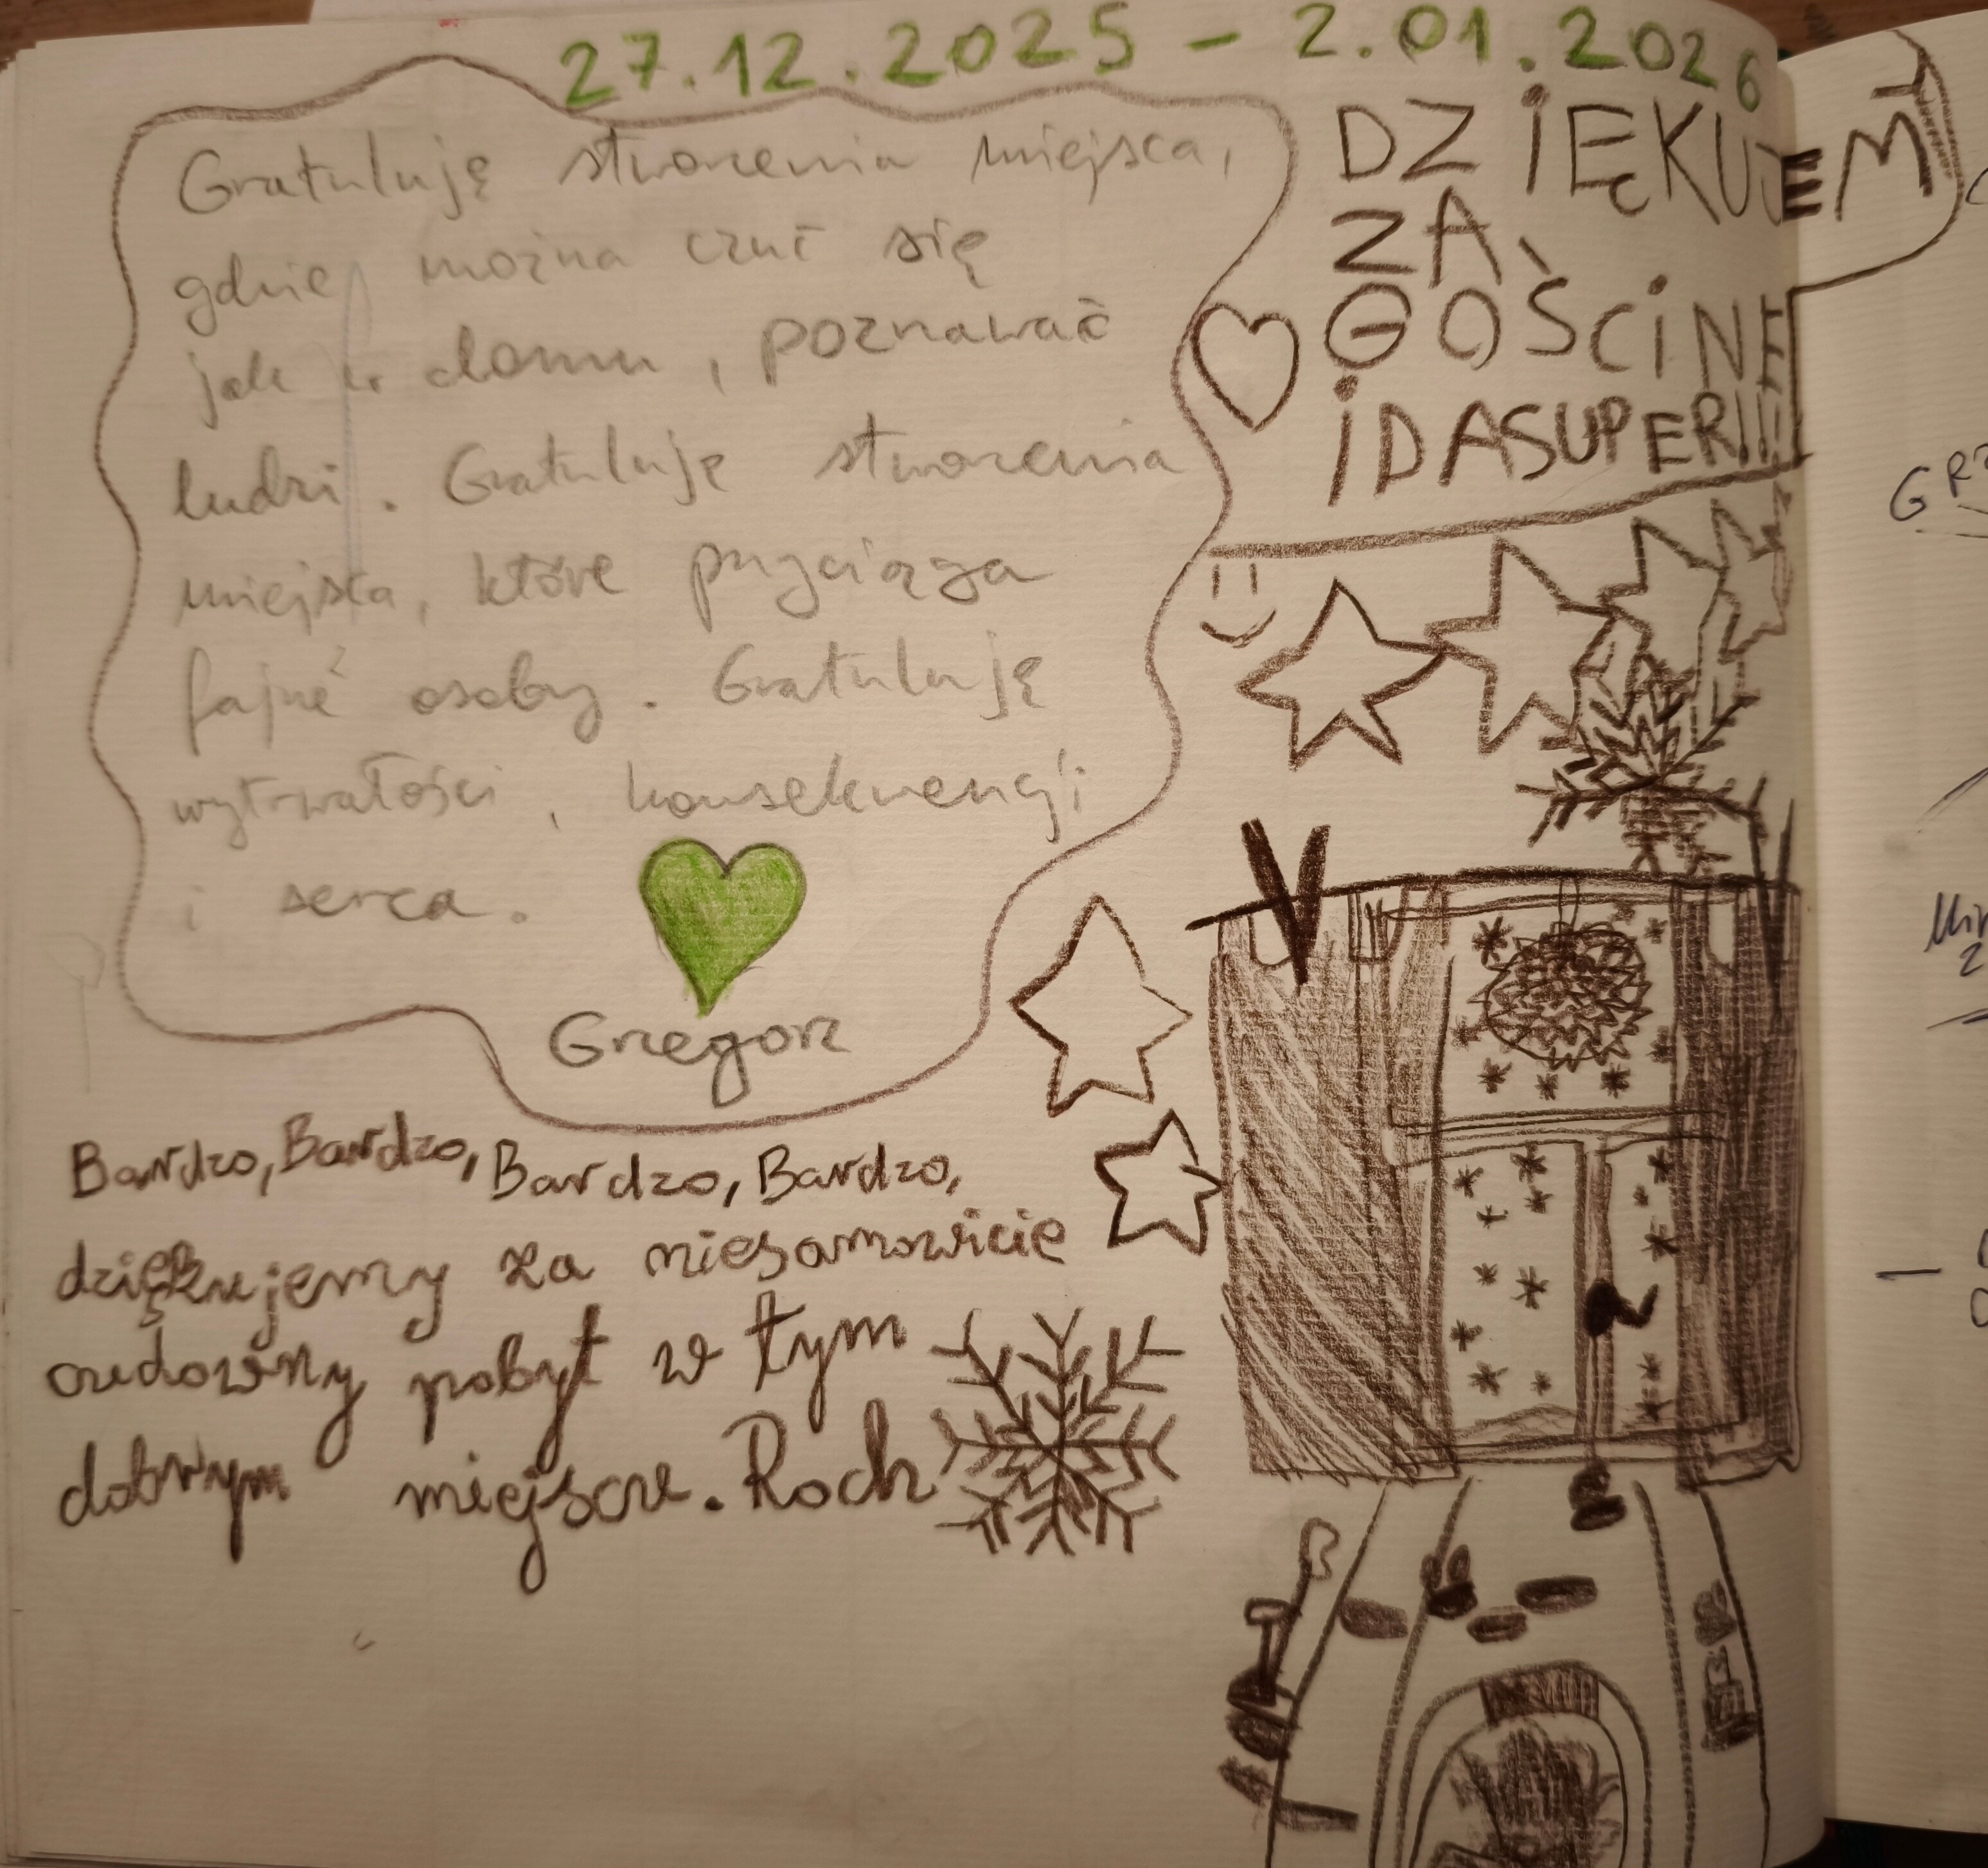 27.12.2025 - 2.01.2026
Gratuluję stworzenia miejsca,
gdzie można czuć się
jak w domu, poznawać
ludzi. Gratuluję stworzenia
miejsca, które przyciąga
fajne osoby. Gratuluję
wytrwałości, konsekwencji
i serca.
Grzegorz
DZIĘKUJEMY
ZA
GOŚCINE
I DASUPER!!!
Bardzo, Bardzo, Bardzo, Bardzo,
dziękujemy za niesamowicie
cudowny pobyt w tym
dobrym miejscu. Roch
GRZ